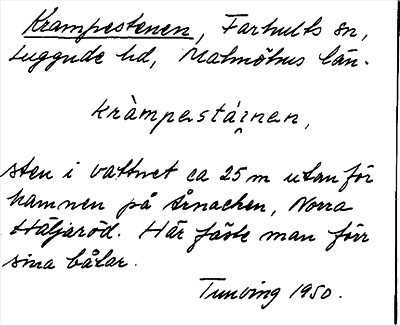 Krampestenen, Farhults sn,
Luggude hd, Malmöhus län.
kràmpastái̯nen,
sten i vattnet ca 25 m utanför
hamnen på Arnacken, Norra
Häljaröd. Här fäste man förr
sina båtar.
Tunving 1950.